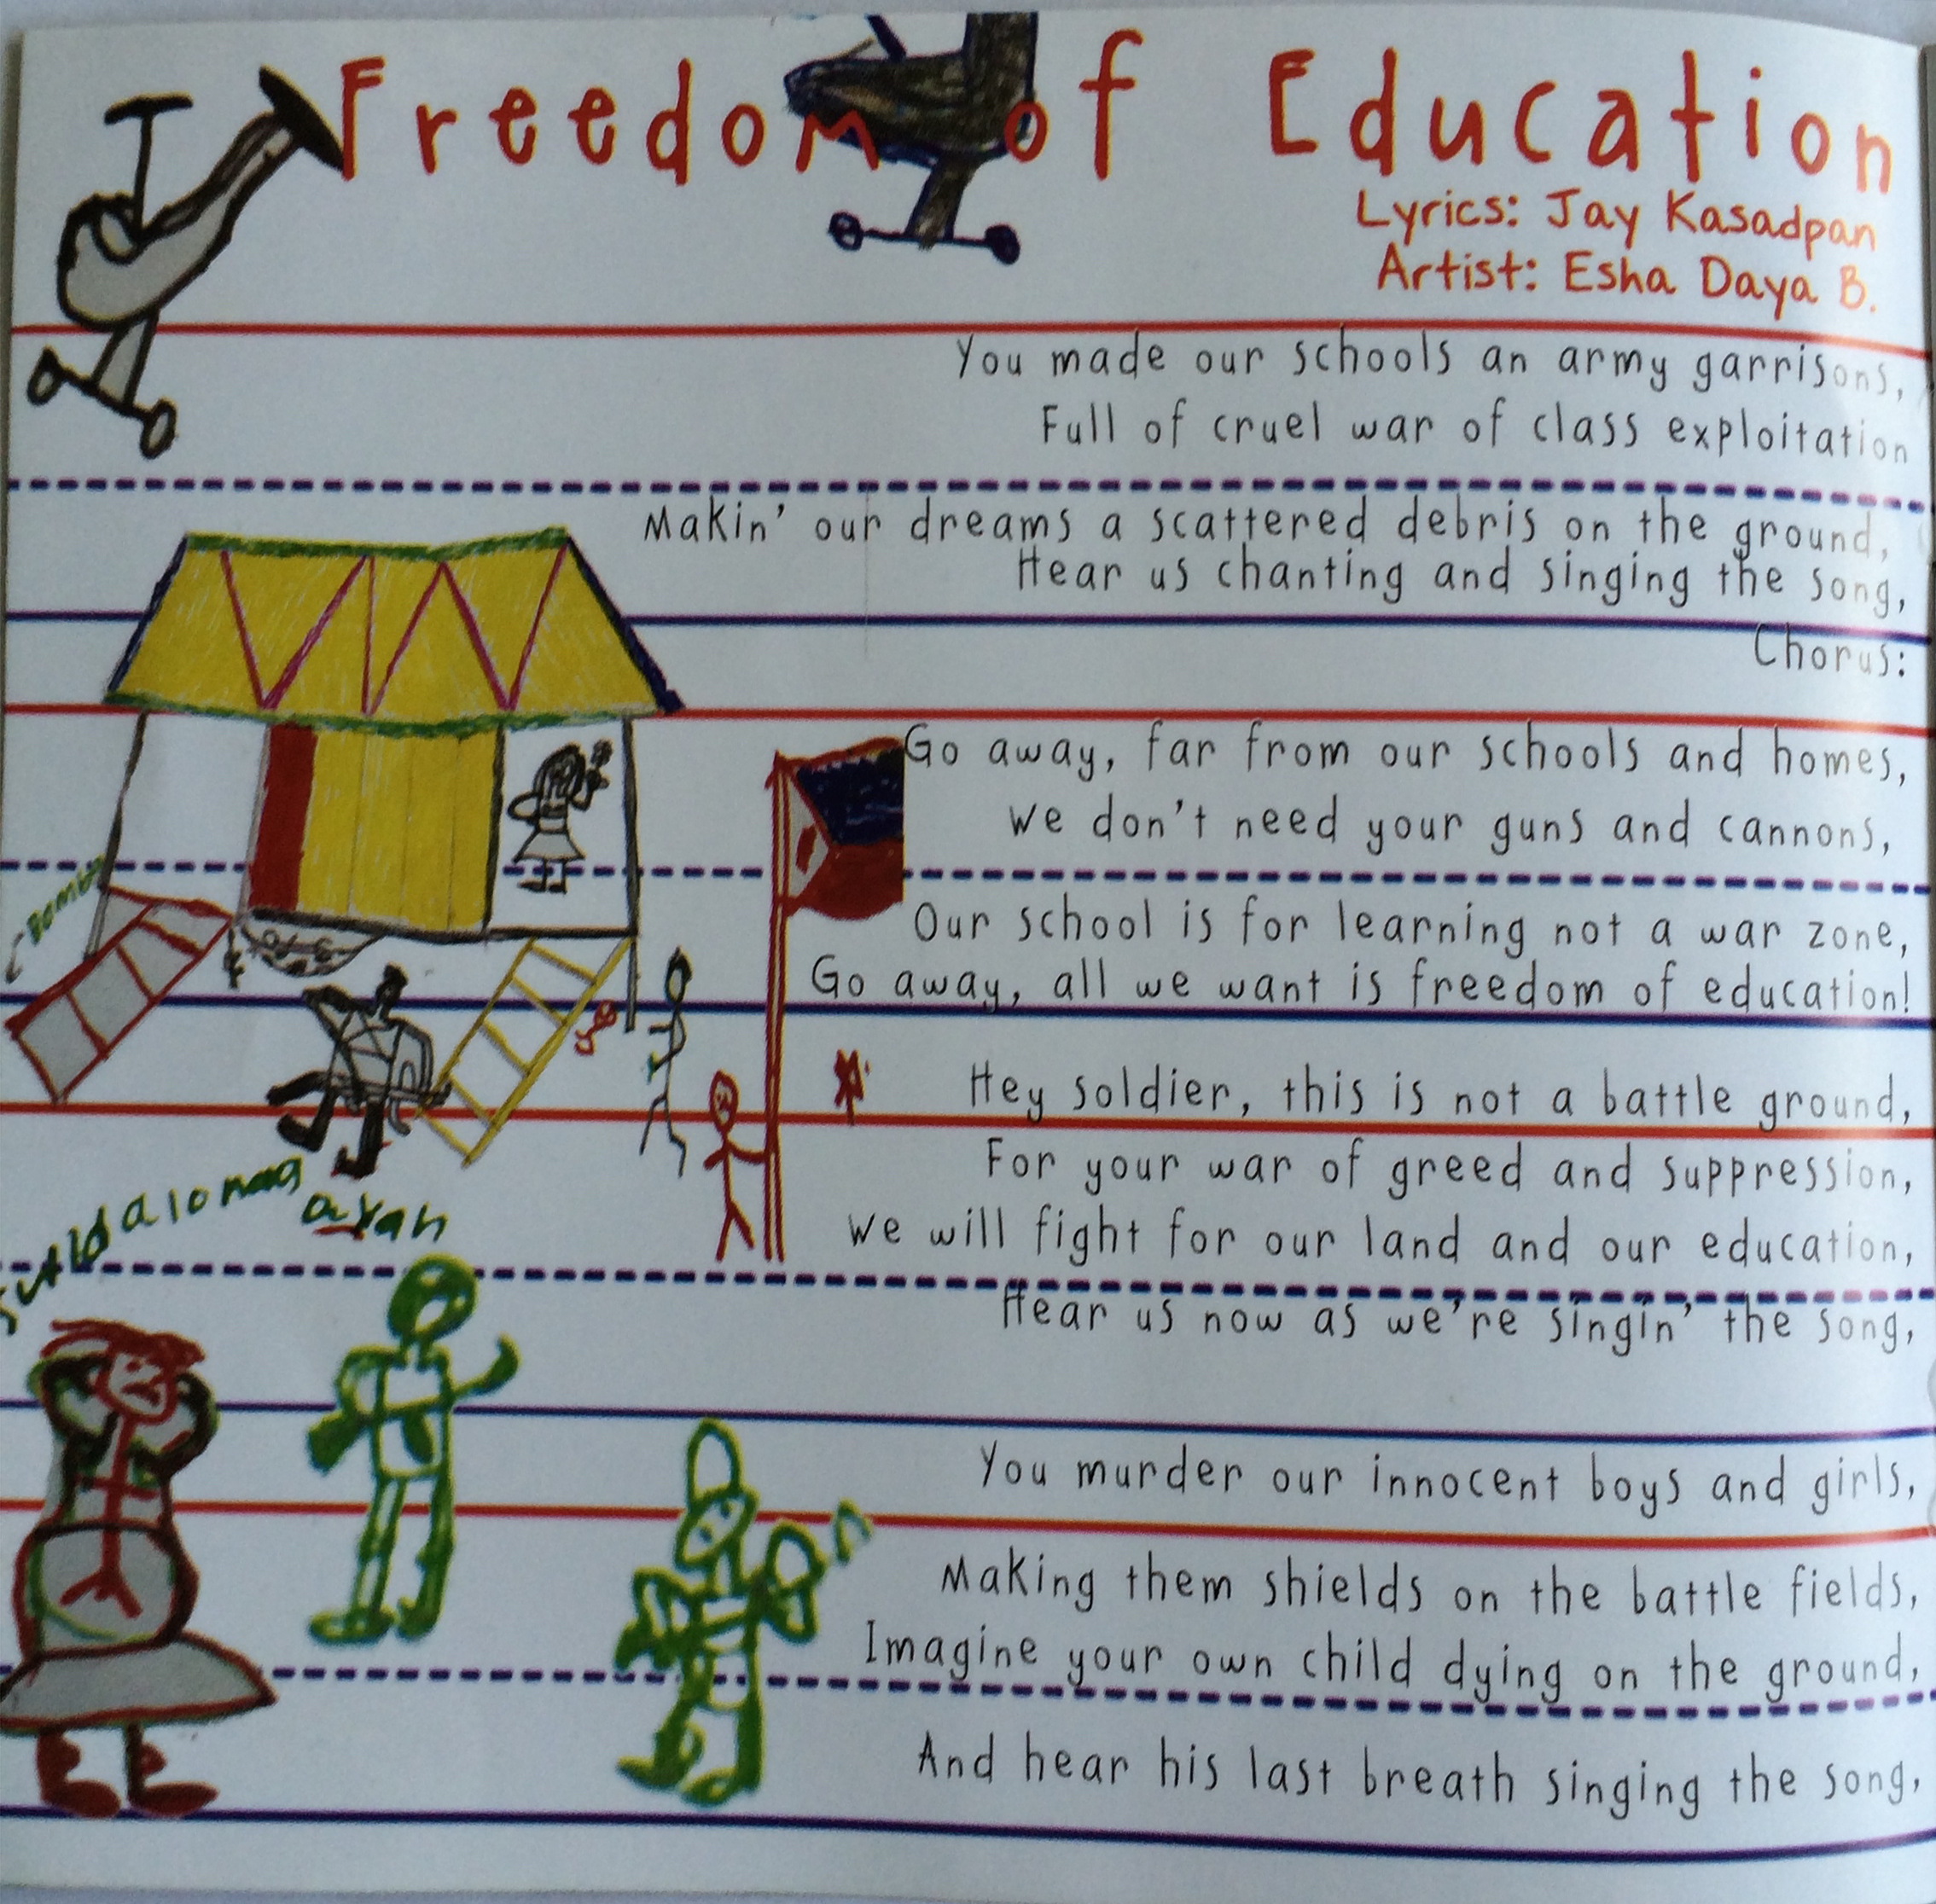 Freedom of Education
Lyrics: Jay Kasadpan
Artist: Esha Daya B.
You made our schools an army garrisons,
Full of cruel war of class exploitation
Makin' our dreams a scattered debris on the ground,
Hear us chanting and singing the song,
Chorus:
Go away, far from our schools and homes,
We don't need your guns and cannons,
Our school is for learning not a war zone,
Go away, all we want is freedom of education!
Hey soldier, this is not a battle ground,
For your war of greed and suppression,
We will fight for our land and our education,
Hear us now as we're singin' the song,
You murder our innocent boys and girls,
Making them shields on the battle fields,
Imagine your own child dying on the ground,
And hear his last breath singing the song,
ayan